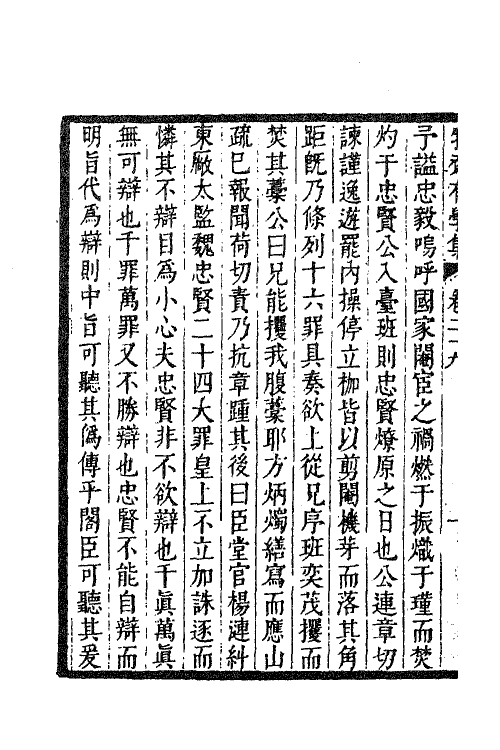 牧齋有學集 卷二十九
予謚忠毅嗚呼國家閹宦之禍燃于振熾于瑾而焚
灼于忠賢公入臺班則忠賢燎原之日也公連章切
諫謹逸遊罷內操停立枷皆以剪閹機芽而落其角
距旣乃條列十六罪具奏欲上從兄序班奕茂攫而
焚其藁公曰兄能攫我腹藁耶方炳燭繕寫而應山
疏已報聞荷切責乃抗章踵其後曰臣堂官楊漣糾
東廠太監魏忠賢二十四大罪皇上不立加誅逐而
憐其不辯目爲小心夫忠賢非不欲辯也千眞萬眞
無可辯也千罪萬罪又不勝辯也忠賢不能自辯而
明旨代爲辯則中旨可聽其僞傳乎閣臣可聽其爰